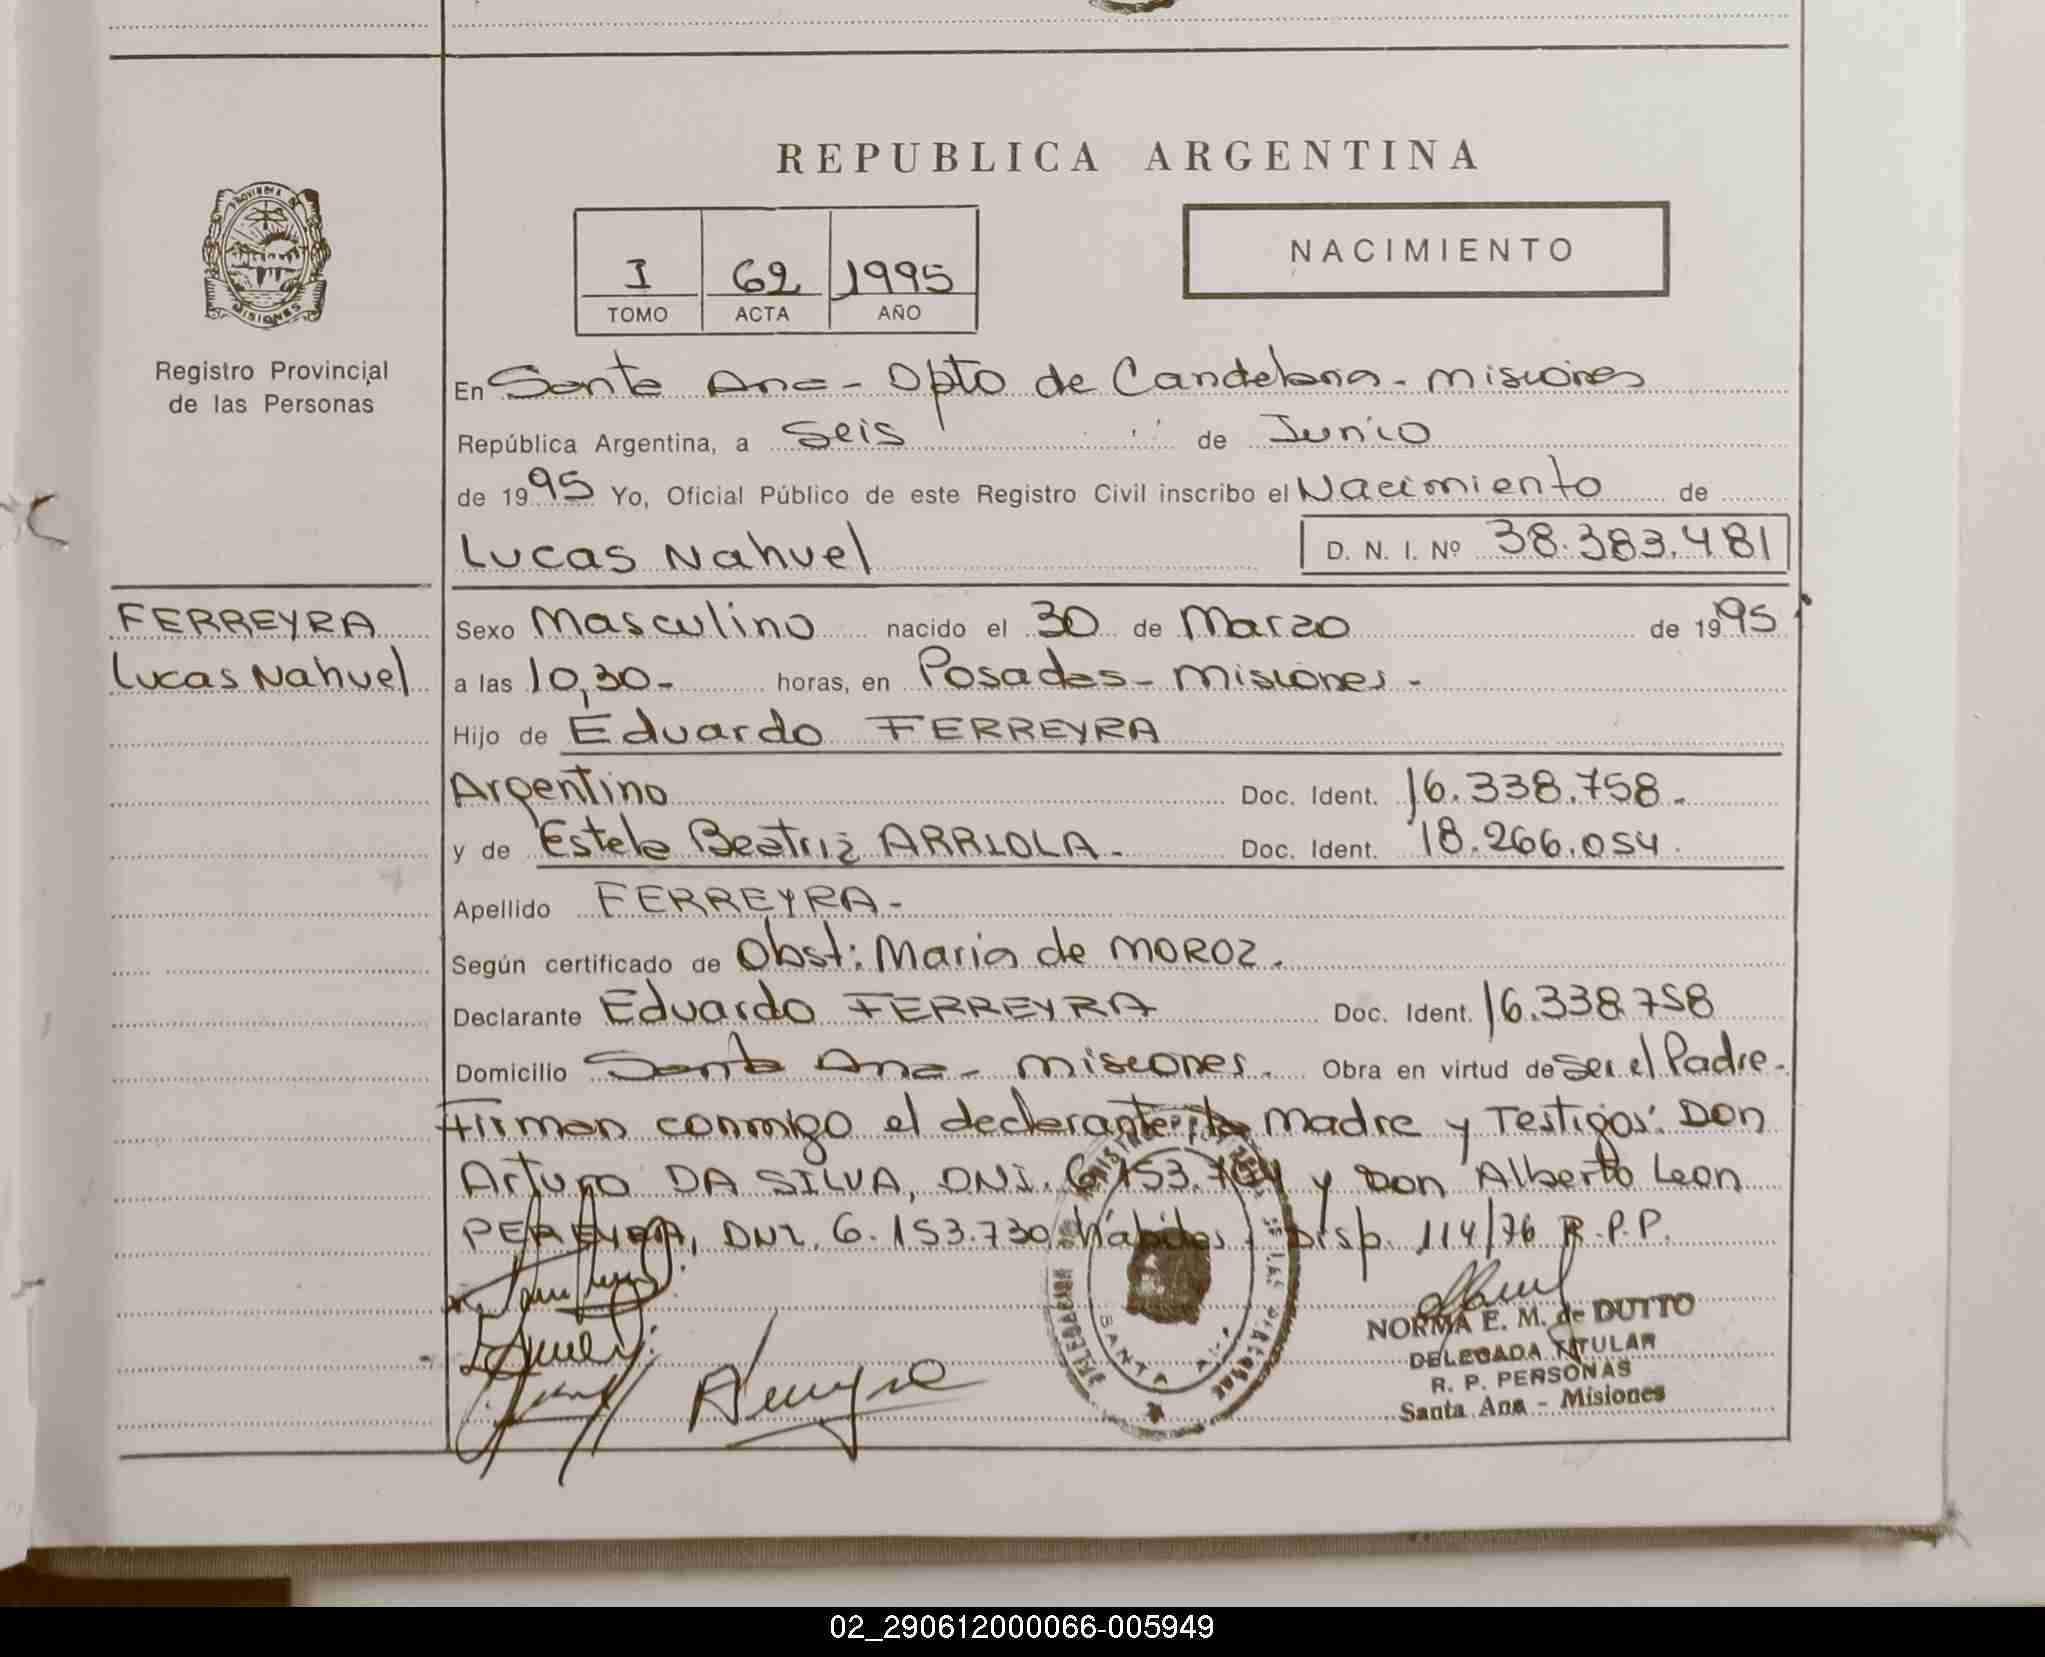 REPUBLICA ARGENTINA
PROVINCIA DE
MISIONES
Registro Provincial
de las Personas
I 62 1995
TOMO ACTA AÑO
NACIMIENTO
En Santa Ana - Dpto de Candelaria - Misiones
República Argentina, a Seis de Junio
de 1995 Yo, Oficial Público de este Registro Civil inscribo el Nacimiento de
Lucas Nahuel D. N. I. Nº 38.383.481
FERREYRA
Lucas Nahuel
Sexo Masculino nacido el 30 de Marzo de 1995
a las 10,30- horas, en Posadas - Misiones -
Hijo de Eduardo FERREYRA
Argentino Doc. Ident. 16.338.758.-
y de Estela Beatriz ARRIOLA.- Doc. Ident. 18.266.054.
Apellido FERREYRA.-
Según certificado de Obst: Maria de MOROZ.
Declarante Eduardo FERREYRA Doc. Ident. 16.338.758
Domicilio Santa Ana - Misiones. Obra en virtud de Ser el Padre.-
Firman conmigo el declarante, la Madre y Testigos: Don
Arturo DA SILVA, DNI. 6.153.704 y Don Alberto Leon
PEREYRA, DNI. 6.153.730 hábiles. Disp. 114/76 R.P.P.
NORMA E. M. de DUTTO
DELEGADA TITULAR
R. P. PERSONAS
Santa Ana - Misiones
DELEGACION
SANTA ANA
02_290612000066-005949